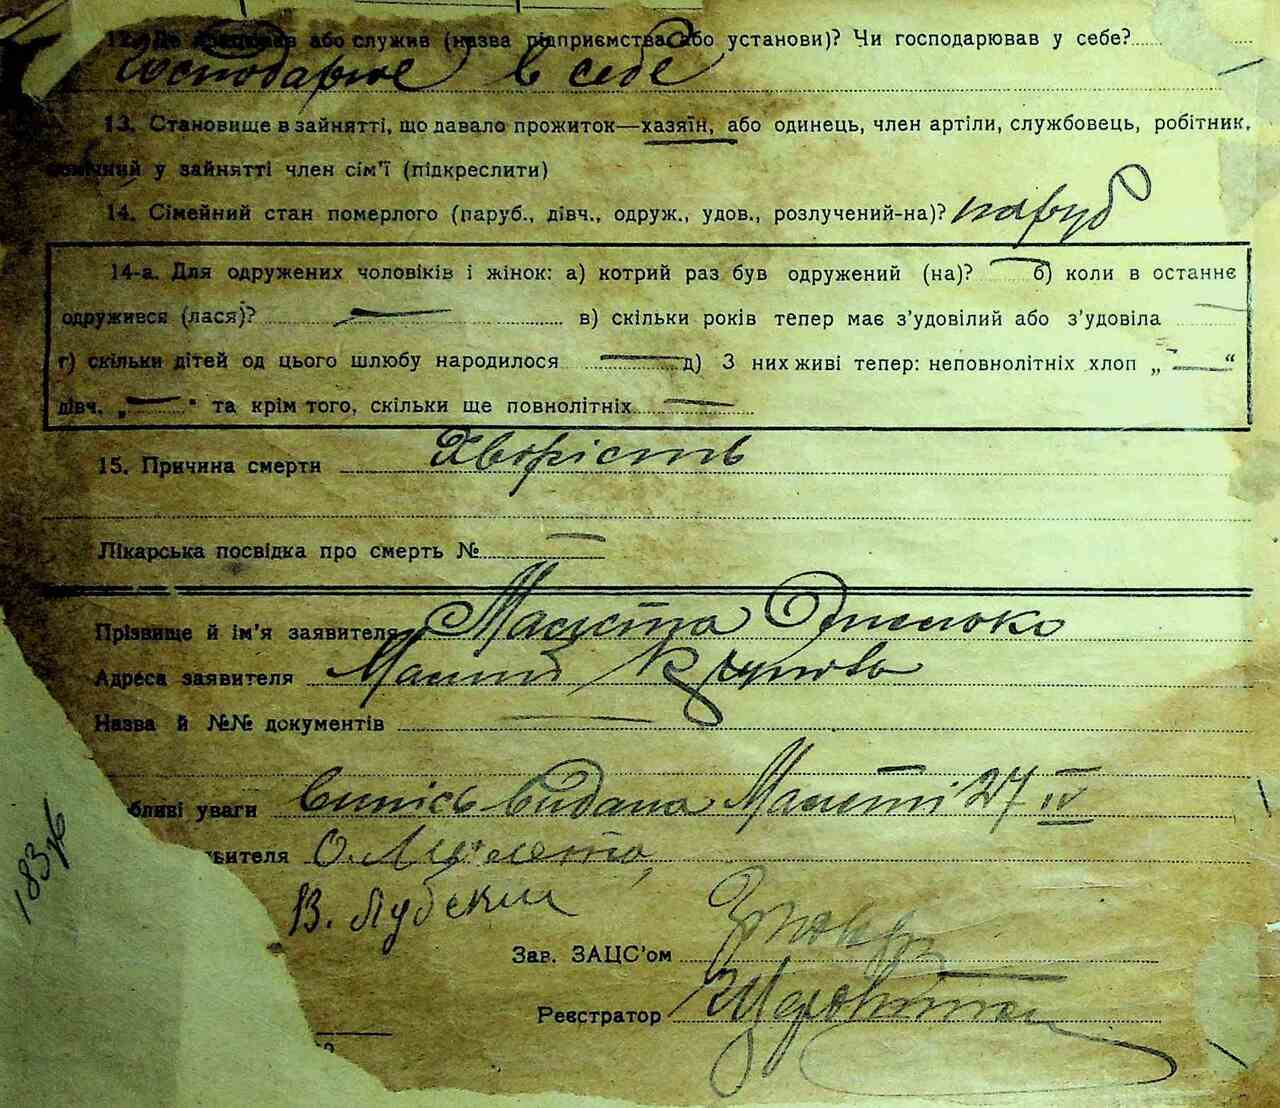 12. Де або служив (назва підприємства або установи)? Чи господарював у себе?
Господарює в себе
13. Становище в зайнятті, що давало прожиток—хазяїн, або одинець, член артіли, службовець, робітник,
у зайнятті член сім'ї (підкреслити)
14. Сімейний стан померлого (паруб., дівч., одруж., удов., розлучений-на)? паруб
14-а. Для одружених чоловіків і жінок: а) котрий раз був одружений (на)? — б) коли в останнє
одружився (лася)? — в) скільки років тепер має з'удовілий або з'удовіла —
г) скільки дітей од цього шлюбу народилося — д) З них живі тепер: неповнолітніх хлоп „ — “
дівч. „ — " та крім того, скільки ще повнолітніх —
15. Причина смерти Хворість
Лікарська посвідка про смерть № —
Прізвище й ім'я заявителя
Адреса заявителя
Назва й №№ документів —
бливі уваги випісь видана 27 IV
вителя О.
В.
Зав. ЗАЦС'ом
Реєстратор
183